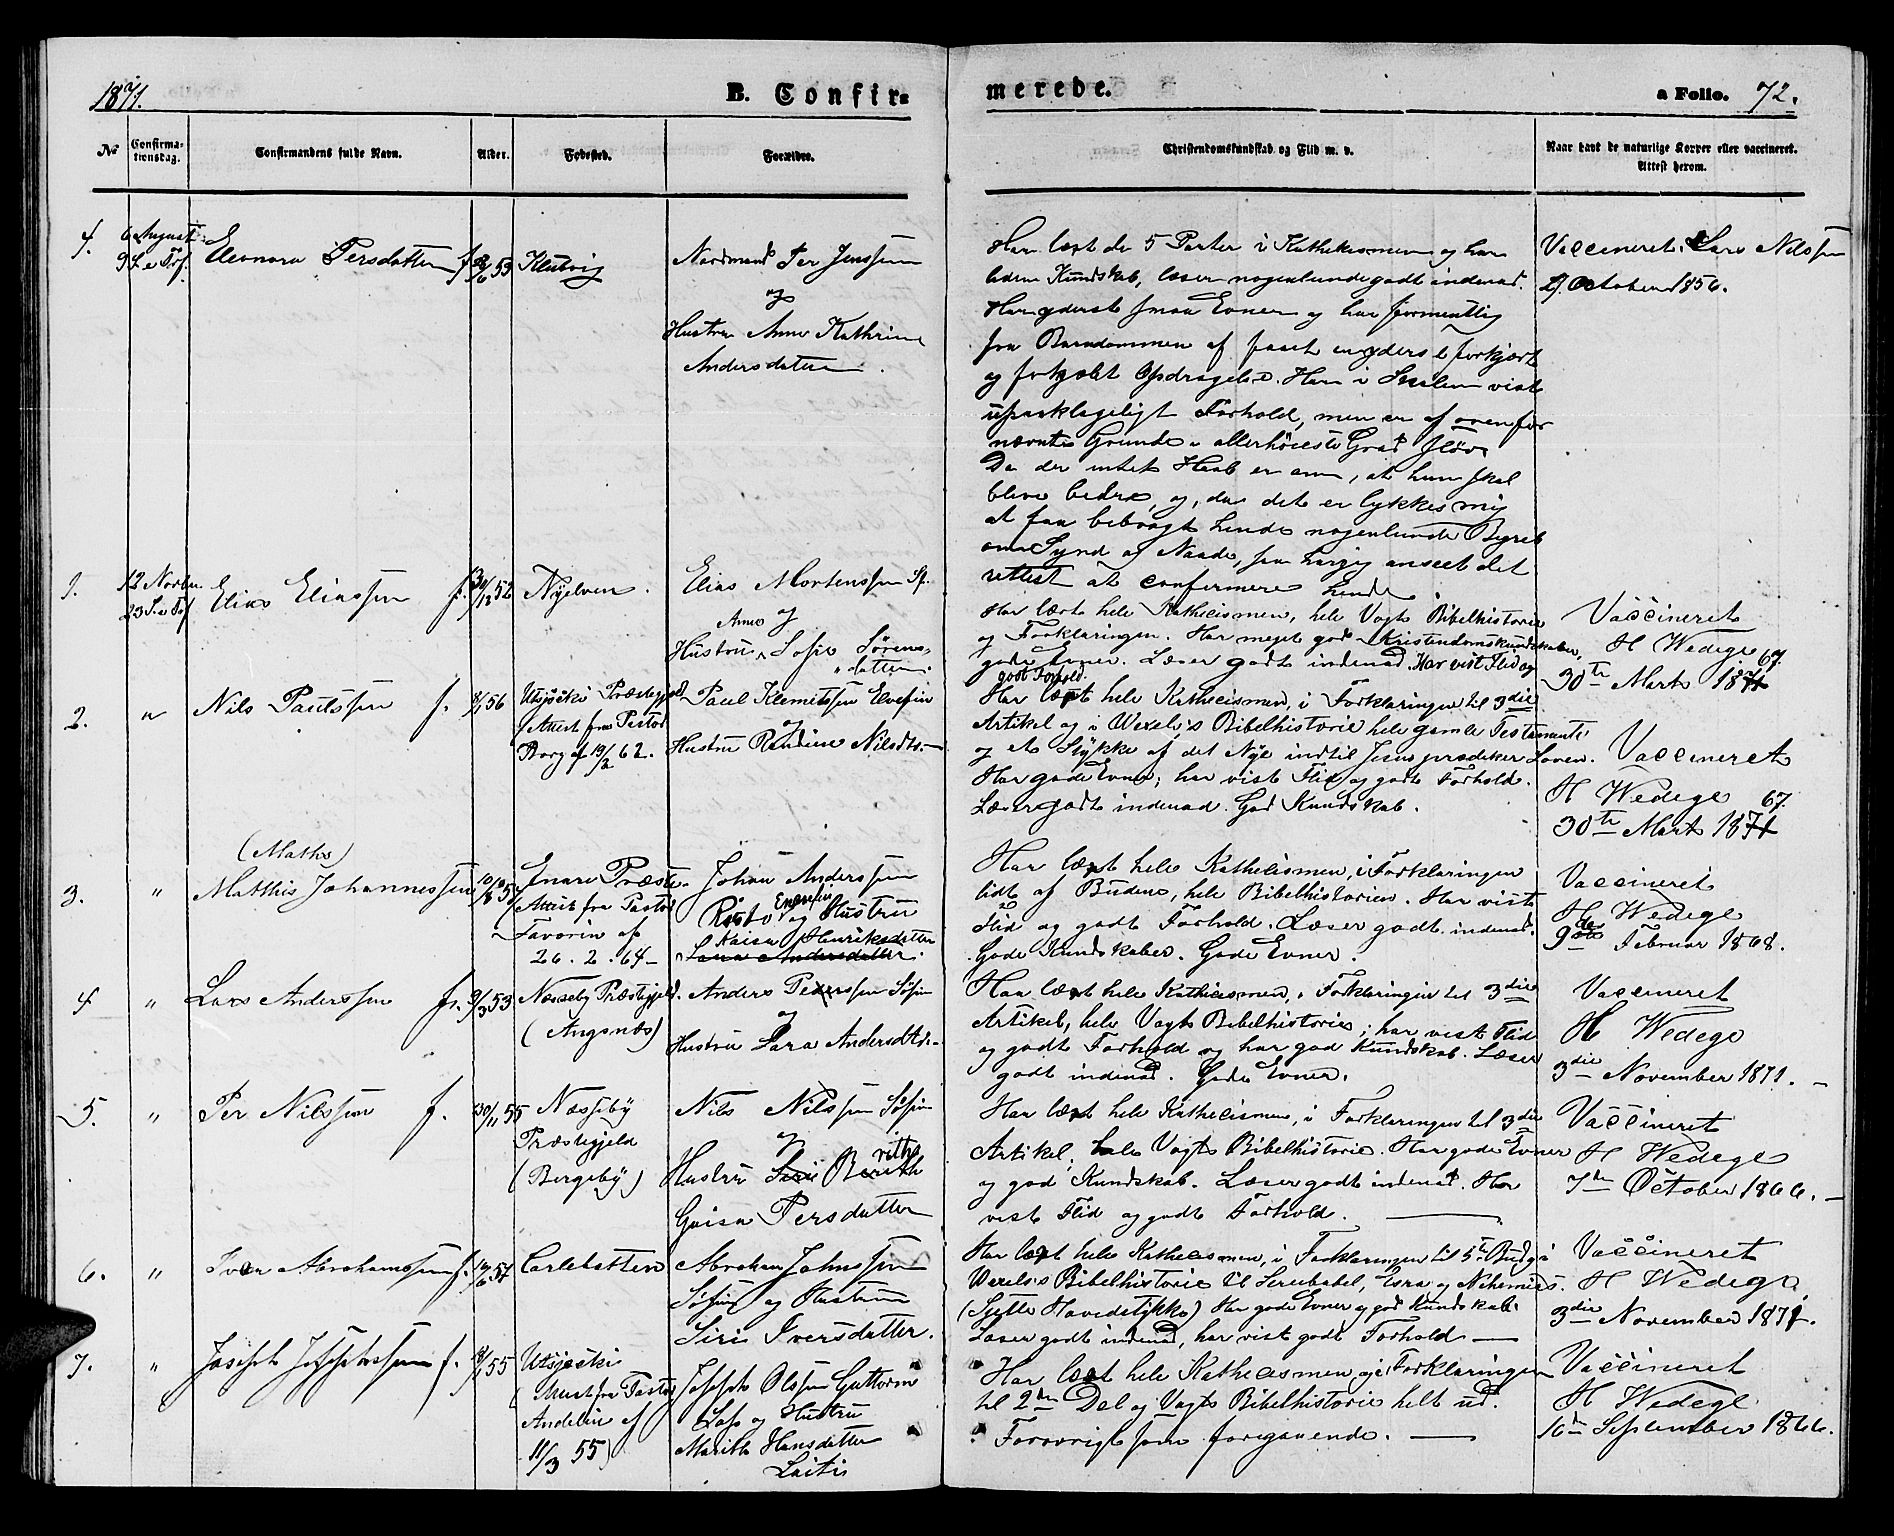 1871.
B. Confir-
merede.
a Folio. 72.
No
Confirma-
tionsdag.
Confirmandens fulde Navn.
Alder.
Fødested.
Forældre.
Christendomskundskab og Flid m. v.
Naar havt de naturlige Kopper eller vaccineret.
Attest derom.
4.
6 August
9 S. e. Tref.
Eleonora Persdatter f.
53
Klubvig
Nordmand Per Jenssen
og
Hustru Anne Kathrine
Andersdatter.
Har læst de 5 Parter i Kathekismen og har
liden Kundskab, læser nogenlunde godt indenad.
Har yderst smaa Evner og har formentlig
fra Barndommen af faaet en yderst forkjært
og forkjælet Opdragelse. Har i Skolen vist
upaaklageligt Forhold, men er af ovenfor
nævnte Grunde i allerhøieste Grad sløv.
Da der intet Haab er om, at hun skal
blive bedre, og, da det er lykkes mig
at faa bibragt hende nogenlunde Begreb
om Synd og Naade, saa har jeg anseet det
rettest at confirmere hende.
Vaccineret. Lars Nilssen
October 1856.
1.
12 Novbr.
23 S. e. Tref
Elias Eliassen f.
30/12 52
Nyelven.
Elias Mortenssen Sp.
og
Anne
Hustru Sofie Sørens-
datter.
Har læst hele Kathecismen, hele Vogts Bibelhistorie
og Forklaringen. Har meget gode Kristendomskundskaber,
gode Evner. Læser godt indenad. Har vist Flid og
godt Forhold.
Vaccineret
H Wedege
67.
30te Marts 1871
2.
"
Nils Paulssen f.
8/1 56
Utsjoki Præstegjeld
(Attest fra Pastor
Borg af 19/2 62.
Paul Klemetssen Elvefin
og
Hustru Rendine Nilsdtr.
Har læst hele Kathecismen, i Forklaringen til 3die
Artikel og i Wexels's Bibelhistorie hele gamle Testamente
og et Stykke af det Nye indtil Jesus prædiker Loven.
Har gode Evner; har vist Flid og godt Forhold.
Læser godt indenad. God Kundskab.
Vaccineret
H Wedege
67.
30te Marts 1871
3.
"
(Maths)
Matthis Johannessen
10/8 55
Enare Præste-
(Attest fra Pastor
Favorin af
26. 2. 64-
Johan Anderssen
Risto og Hustru
Kaisa Henriksdatter
Sara Andersdatter.
Har læst hele Kathecismen, i Forklaringen
lidt af Budene, hele Bibelhistorien. Har vist
Flid og godt Forhold. Læser godt indenad.
Gode Kundskaber. Gode Evner.
Vaccineret
H Wedege
9de Februar 1868.
4
"
Lars Anderssen f.
9/3 53
Næsseby Præstegjeld.
(Angsnæs)
Anders Pederssen Søfin
og
Hustru Sara Andersdtr.
Har læst hele Kathecismen, i Forklaringen til 3die
Artikel, hele Vogts Bibelhistorie; har vist Flid
og godt Forhold og har god Kundskab. Læser
godt indenad. Gode Evner.
Vaccineret
H Wedege
3die November 1871.
5.
"
Per Nilssen f.
30/11 55
Næsseby
Præstegjeld
(Bergeby)
Nils Nilssen Søfin
og
Hustru Siri Berith
rithe
Gaisa Persdatter
Har læst hele Kathecismen, i Forklaringen til 3die
Artikel, hele Vogts Bibelhistorie. Har gode Evner
og god Kundskab. Læser godt indenad. Har
vist Flid og godt Forhold.
Vaccineret
H Wedege
7de October 1866.
6.
"
Iver Abrahamssen f.
57
Carlebotten
Abraham Johnssen
Søfin og Hustru
Siri Iversdatter.
Har læst hele Kathecismen, i Forklaringen til 5te Bud, i
Vexels's Bibelhistorie til Serubabel, Esra og Nehemias.
(Sjette Hovedstykke) Har gode Evner og god Kundskab.
Læser godt indenad, har vist godt Forhold
Vaccineret
H Wedege
3die November 1871.
7.
"
Joseph Josephssen f.
8/1 55
Utsjoki
(Attest fra Pastor
Andelin af
11/3 55)
Joseph Olssen Guttorm
Lap og Hustru
Marith Hansdatter
Laiti
Har læst hele Kathecismen, og i Forklaringen
til 2den Del og Vogts Bibelhistorie helt ud.
Forøvrigt som foregaaende.
Vaccineret
H Wedege
16de September 1866.